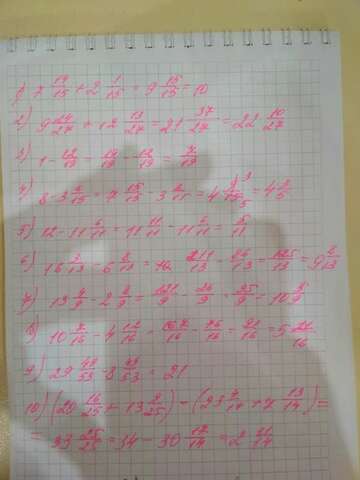 1) 7 14/15 + 2 1/15 = 9 15/15 = 10
2) 9 24/27 + 12 13/27 = 21 37/27 = 22 10/27
3) 1 - 12/19 = 19/19 - 12/19 = 7/19
4) 8 - 3 6/15 = 7 15/15 - 3 6/15 = 4 9/15 3/5 = 4 3/5
5) 12 - 11 6/11 = 11 11/11 - 11 6/11 = 5/11
6) 16 3/13 - 6 8/13 = 211/13 - 86/13 = 125/13 = 9 8/13
7) 13 4/9 - 2 8/9 = 121/9 - 26/9 = 95/9 = 10 5/9
8) 10 7/16 - 4 12/16 = 167/16 - 76/16 = 91/16 = 5 11/16
9) 29 48/53 - 8 48/53 = 21
10) (20 16/25 + 13 9/25) - (23 /14 + 7 13/14) =
= 33 25/25 = 34 - 30 17/14 = 2 11/14